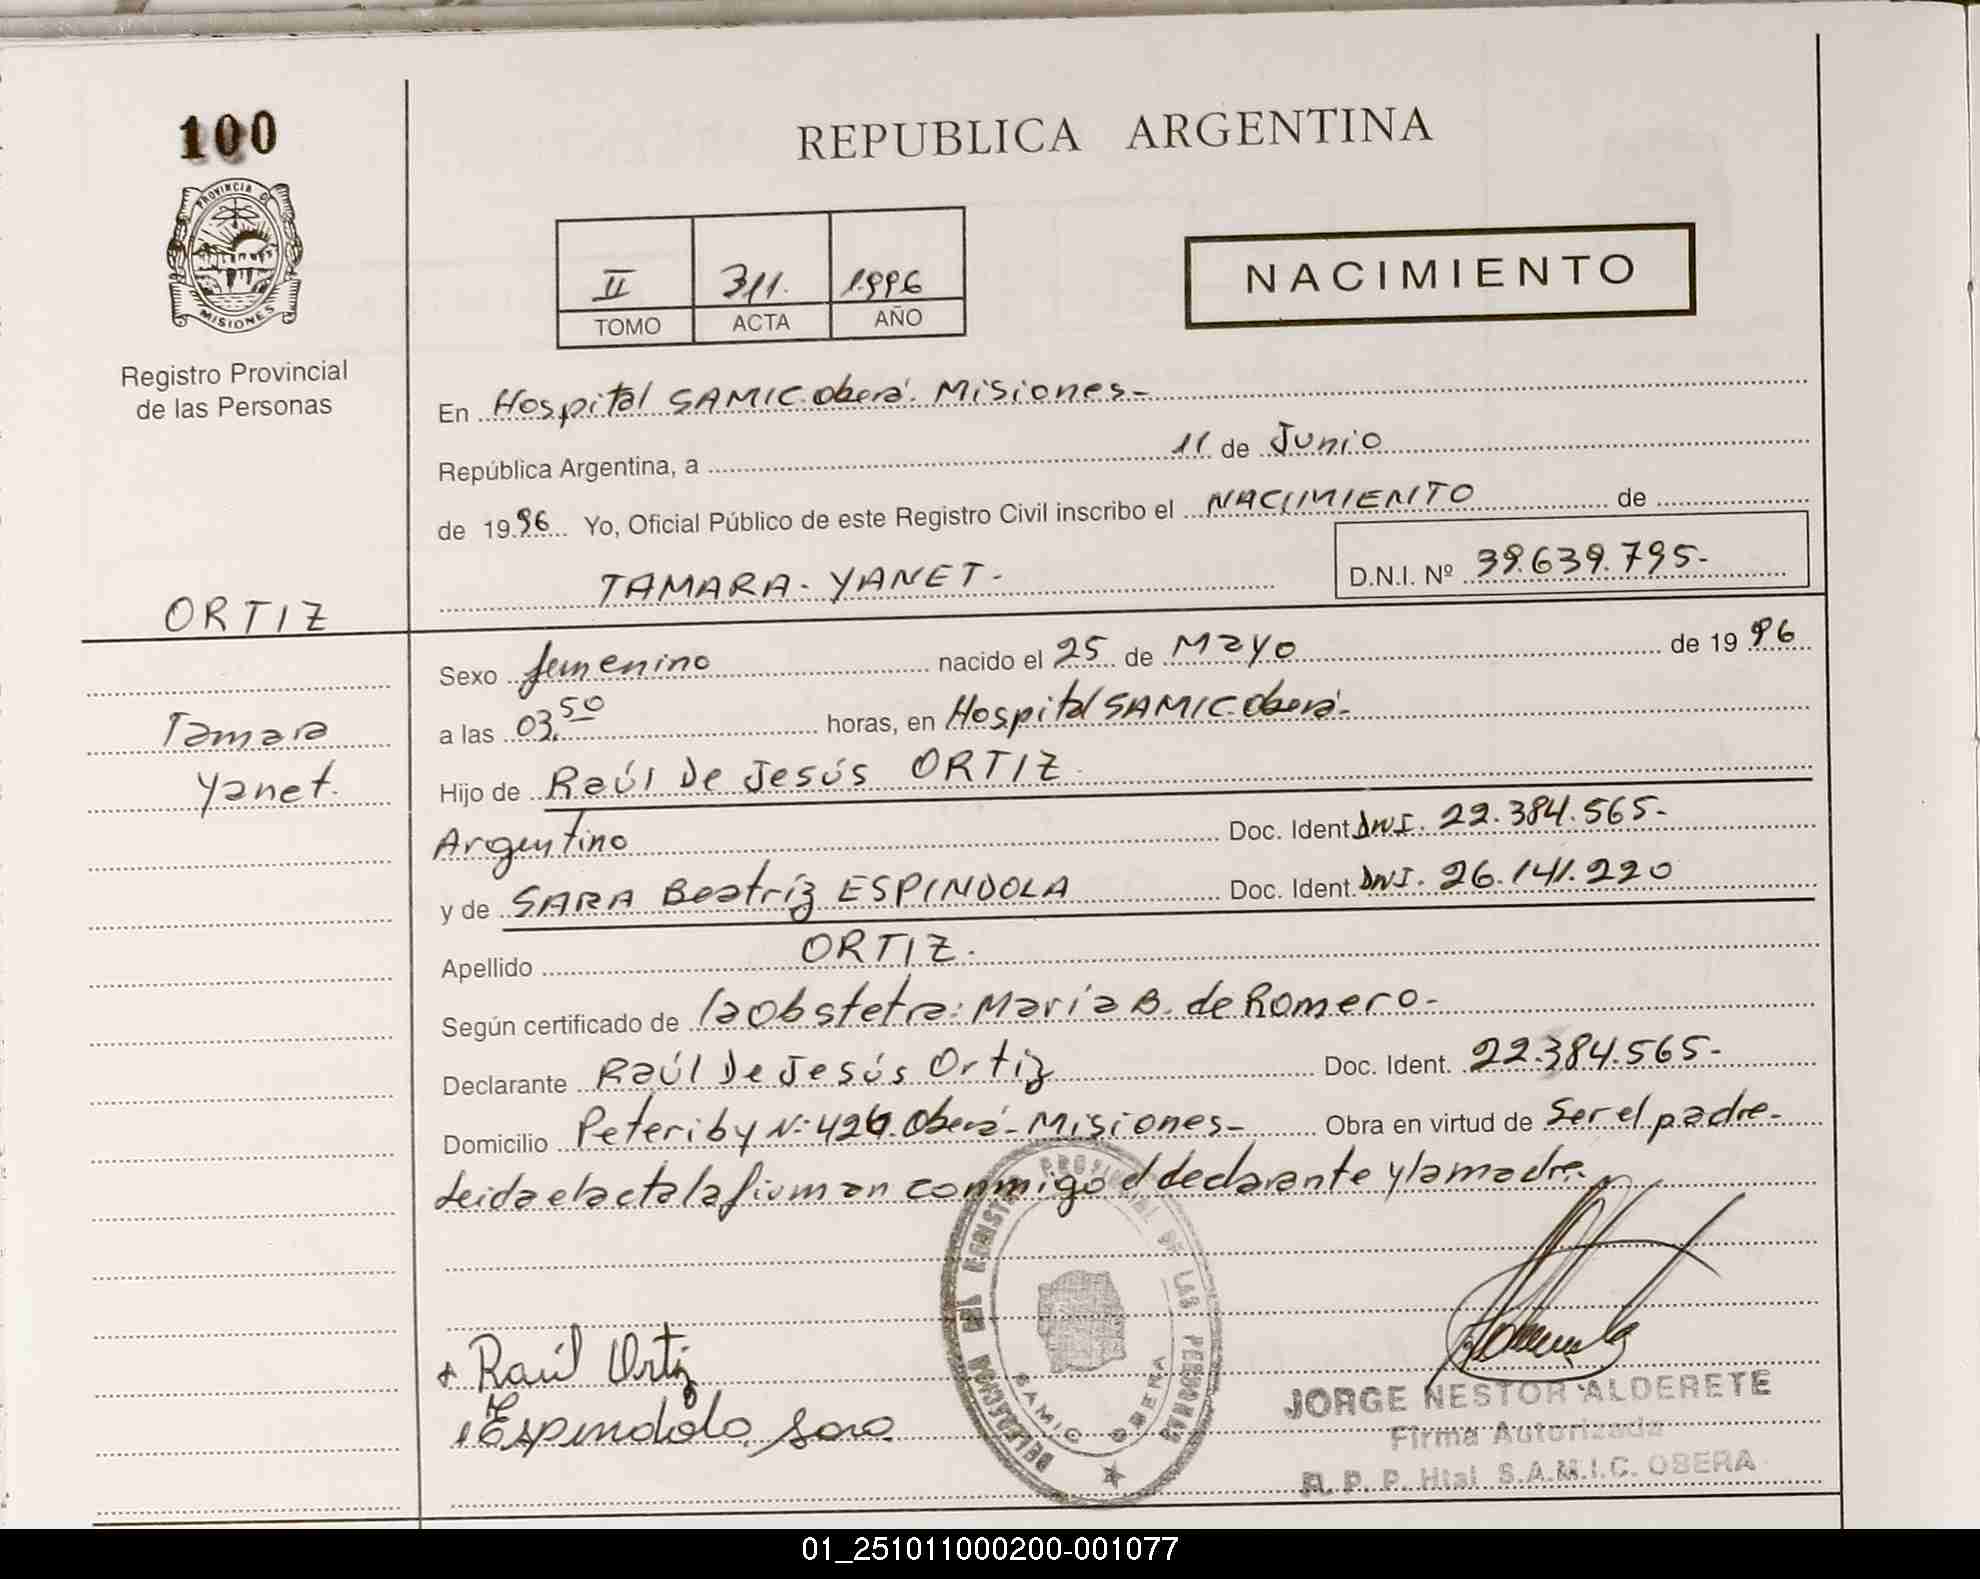 100
PROVINCIA DE
MISIONES
Registro Provincial
de las Personas
ORTIZ
Tamara
Yanet.
REPUBLICA ARGENTINA
II 311. 1996
TOMO ACTA AÑO
NACIMIENTO
En Hospital SAMIC. Oberá. Misiones-
República Argentina, a 11 de Junio
de 1996 Yo, Oficial Público de este Registro Civil inscribo el NACIMIENTO de
TAMARA. YANET. D.N.I. Nº 39.639.795-
Sexo femenino nacido el 25 de Mayo de 1996
a las 03.50 horas, en Hospital SAMIC. Oberá-
Hijo de Raúl De Jesús ORTIZ
Argentino Doc. Ident. DNI. 22.384.565-
y de SARA Beatríz ESPINDOLA Doc. Ident. DNI. 26.141.220
Apellido ORTIZ.
Según certificado de la Obstetra: María B. de Romero-
Declarante Raúl De Jesús Ortiz Doc. Ident. 22.384.565-
Domicilio Peteriby Nº 426. Oberá- Misiones- Obra en virtud de Ser el padre-
Leida el acta la firman conmigo el declarante y la madre.
DELEGACION DEL REGISTRO PROVINCIAL DE LAS PERSONAS
SAMIC OBERA
Raúl Ortiz
Espindola Sara
JORGE NESTOR ALDERETE
Firma Autorizada
R. P. P. Htal. S.A.M.I.C. OBERA
01_251011000200-001077